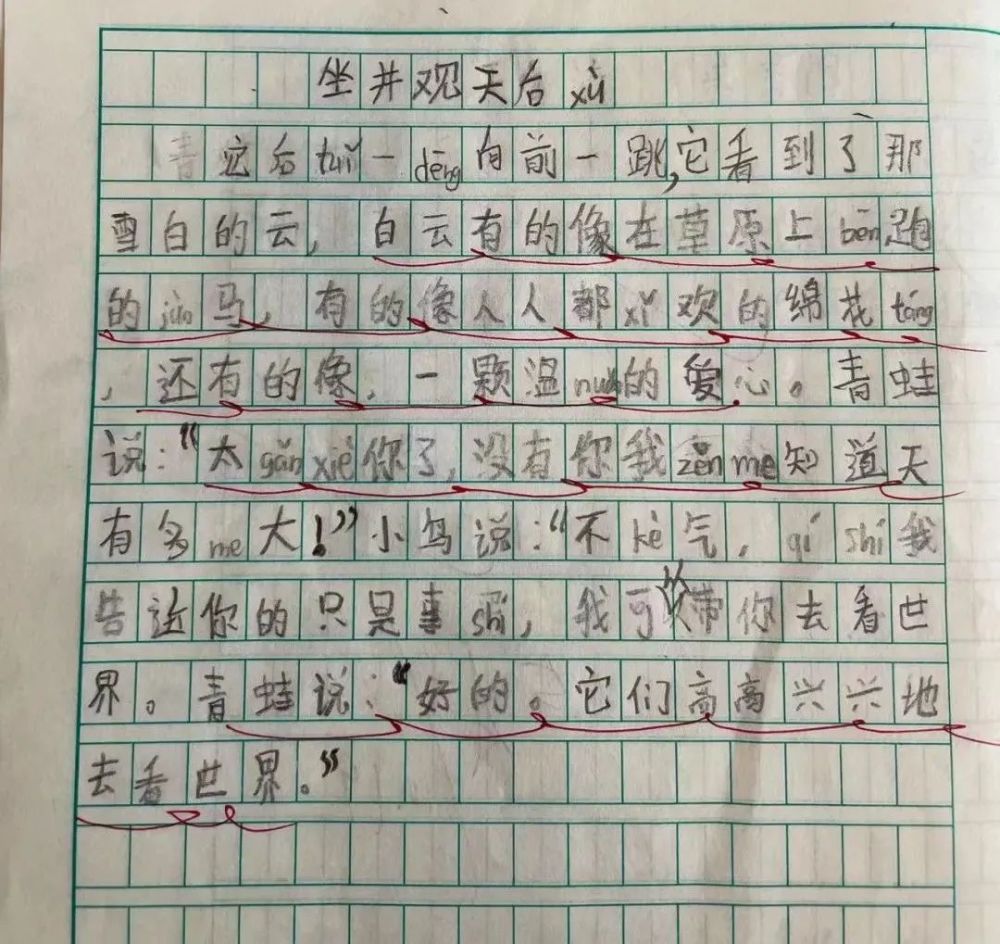 坐井观天后xù
青它后tuǐ一dēng向前一跳,它看到了那
雪白的云，白云有的像在草原上bēn跑
的jùn马，有的像人人都xǐ欢的绵花táng
，还有的像，一颗温nuǎn的爱心。青蛙
说：“太gǎnxiè你了，没有你我zěnme知道天
有多me大！”小鸟说：“不kè气，qí shí我
告诉你的只是事shí，我可以带你去看世
界。青蛙说：“好的。它们高高兴兴地
去看世界。”